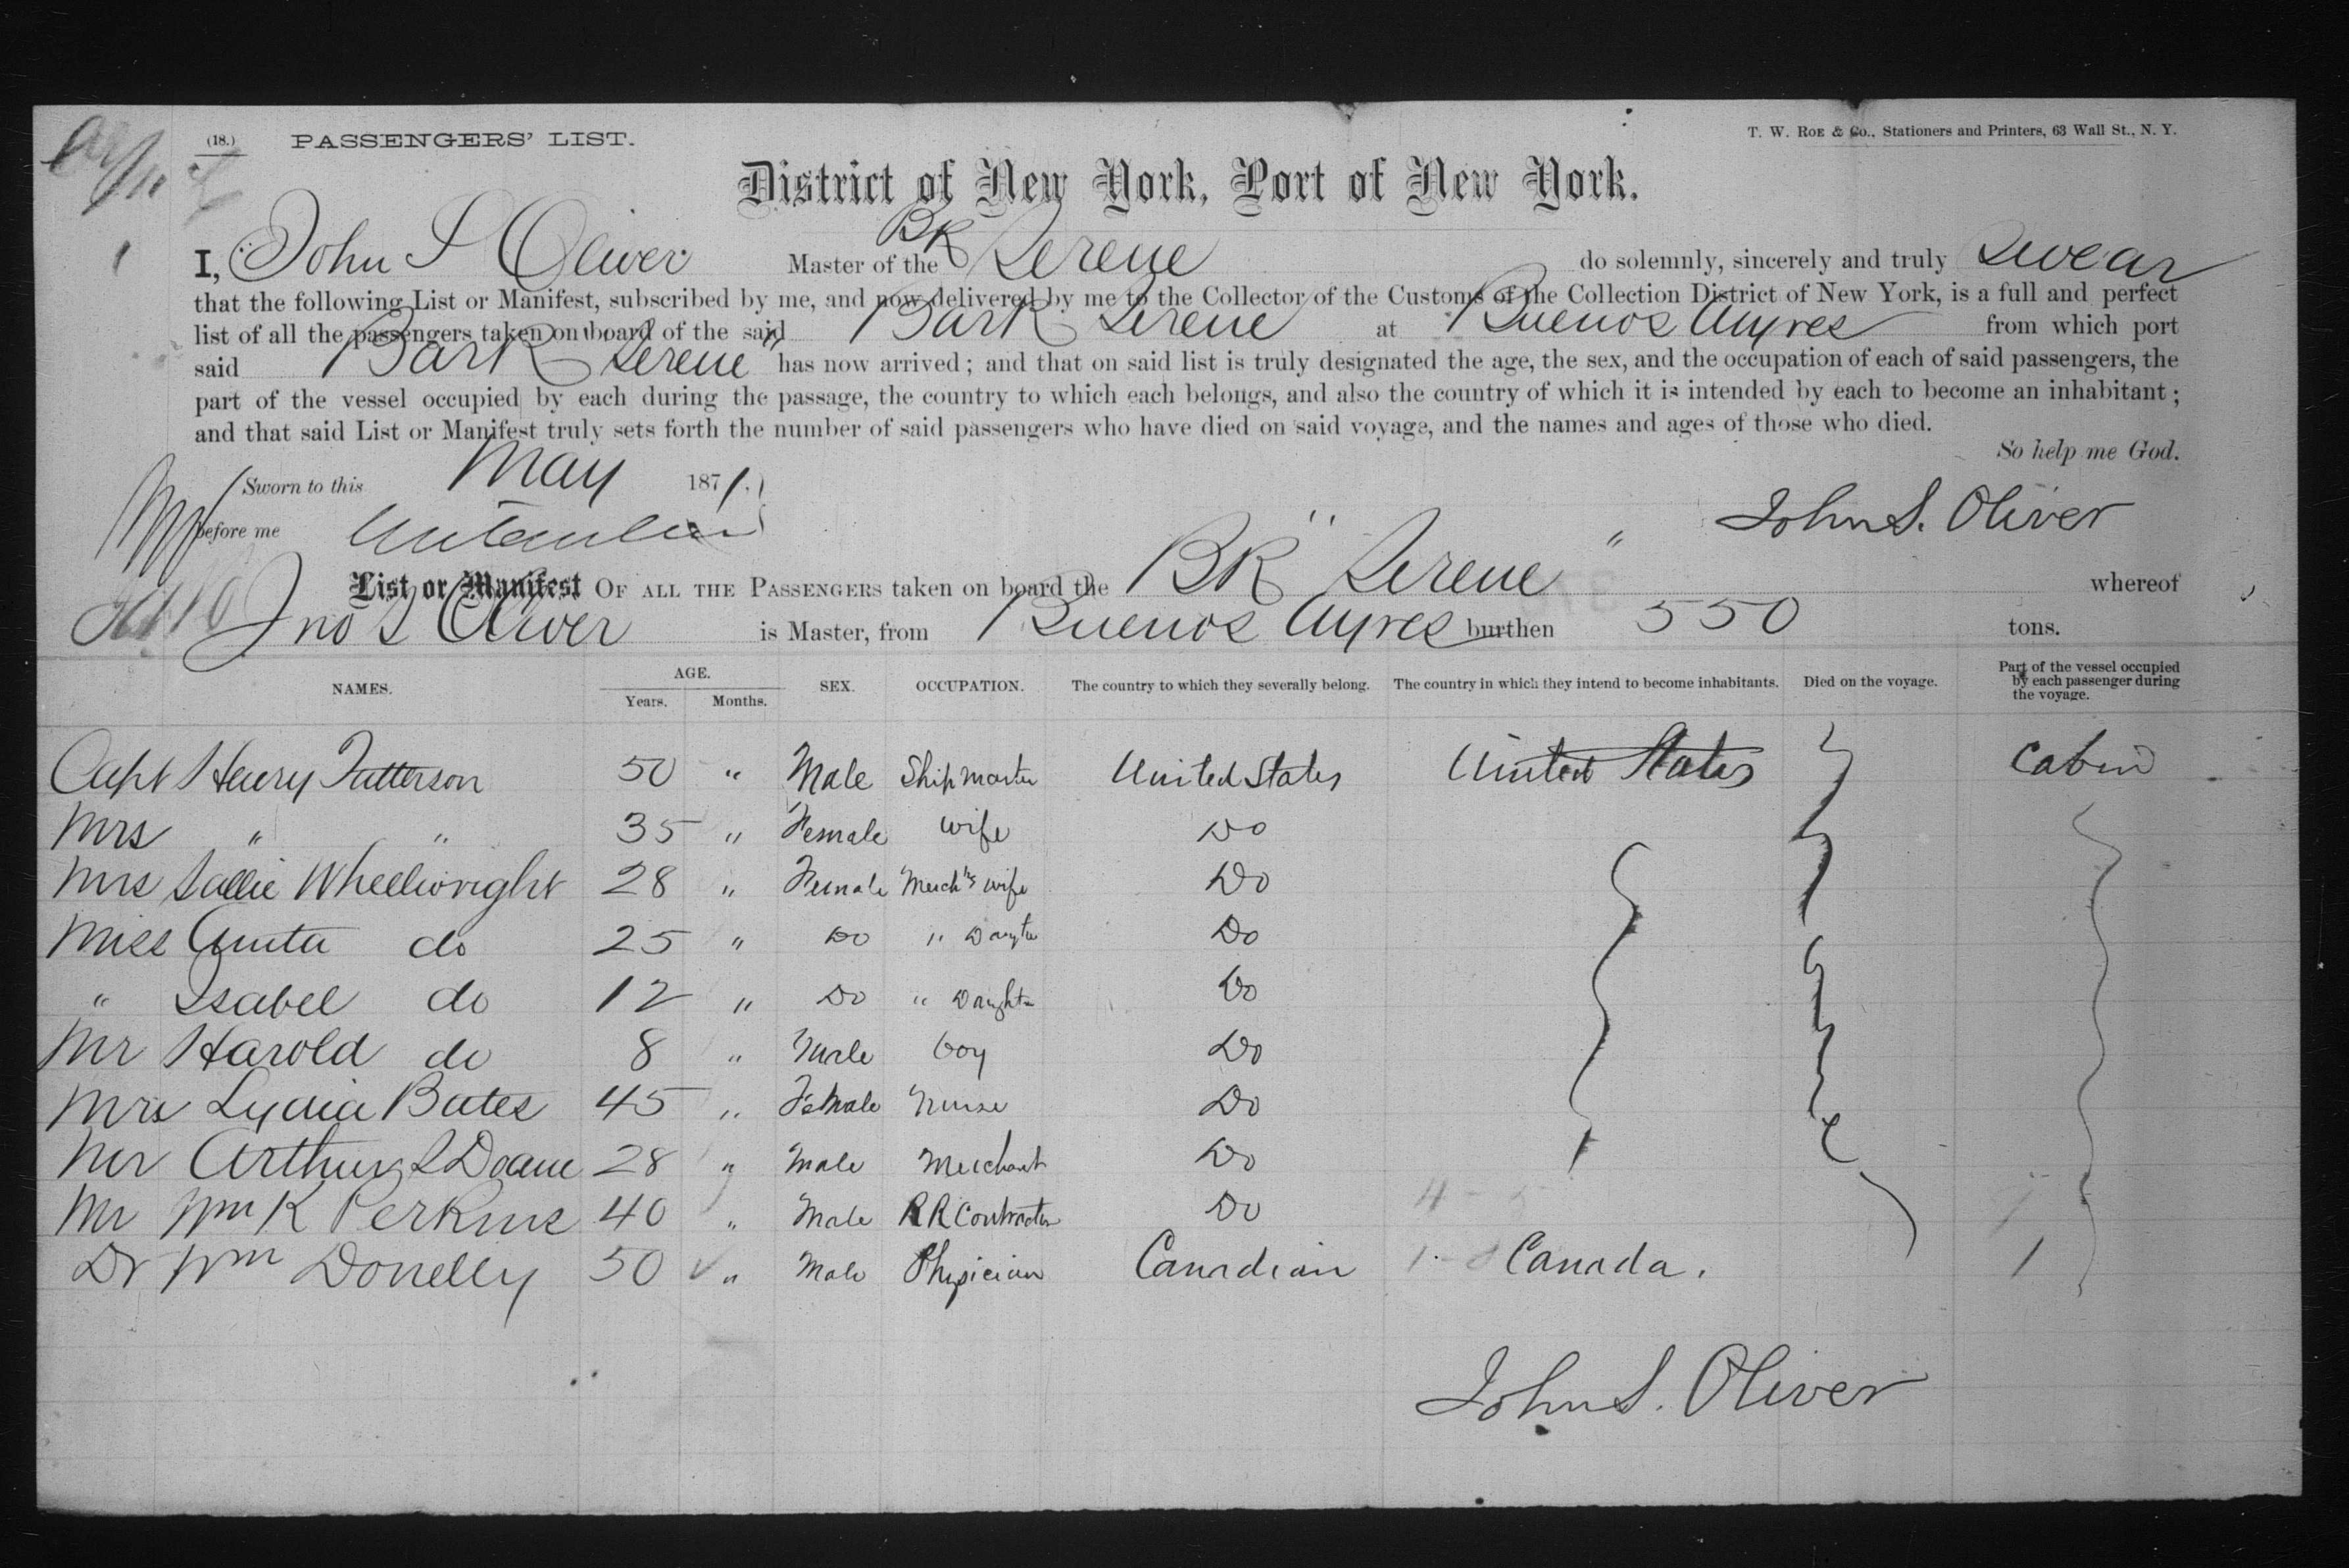 (18.) PASSENGERS' LIST. T. W. ROE & Co., Stationers and Printers, 63 Wall St., N. Y.
District of New York, Port of New York.
I, John S Oliver Master of the Bk Serene do solemnly, sincerely and truly Swear
that the following List or Manifest, subscribed by me, and now delivered by me to the Collector of the Customs of the Collection District of New York, is a full and perfect
list of all the passengers taken on board of the said Bark Serene at Buenos Ayres from which port
said Bark Serene has now arrived; and that on said list is truly designated the age, the sex, and the occupation of each of said passengers, the
part of the vessel occupied by each during the passage, the country to which each belongs, and also the country of which it is intended by each to become an inhabitant;
and that said List or Manifest truly sets forth the number of said passengers who have died on said voyage, and the names and ages of those who died.
So help me God.
Sworn to this May 1871.
before me John S. Oliver
List or Manifest OF ALL THE PASSENGERS taken on board the BK "Serene" whereof
Jno S Oliver is Master, from Buenos Ayres burthen 550 tons.
NAMES. AGE. Years. Months. SEX. OCCUPATION. The country to which they severally belong. The country in which they intend to become inhabitants. Died on the voyage. Part of the vessel occupied by each passenger during the voyage.
Capt Henry Patterson 50 " Male Ship master United States United States Cabin
Mrs " " 35 " Female Wife Do
Mrs Sallie Wheelwright 28 " Female Merch'ts wife Do
Miss Anita do 25 " Do " Daughter Do
" Isabel do 12 " Do " Daughter Do
Mr Harold do 8 " Male boy Do
Mrs Lydia Bates 45 " Female Nurse Do
Mr Arthur S Doane 28 " Male Merchant Do
Mr Wm K Perkins 40 " Male RR Contractor Do
Dr Wm Donelly 50 " Male Physician Canadian Canada.
John S. Oliver